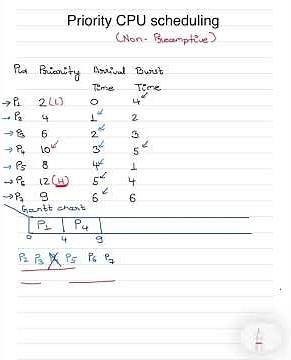 Priority CPU scheduling
(Non-Preemptive)
Pid Priority Arrival Burst
Time Time
→P1 2(L) 0 4
→P2 4 1 2
→P3 6 2 3
→P4 10 3 5
→P5 8 4 1
→P6 12(H) 5 4
→P7 9 6 6
Gantt chart
P1 P4
0 4 9
P2 P3 P4 P5 P6 P7